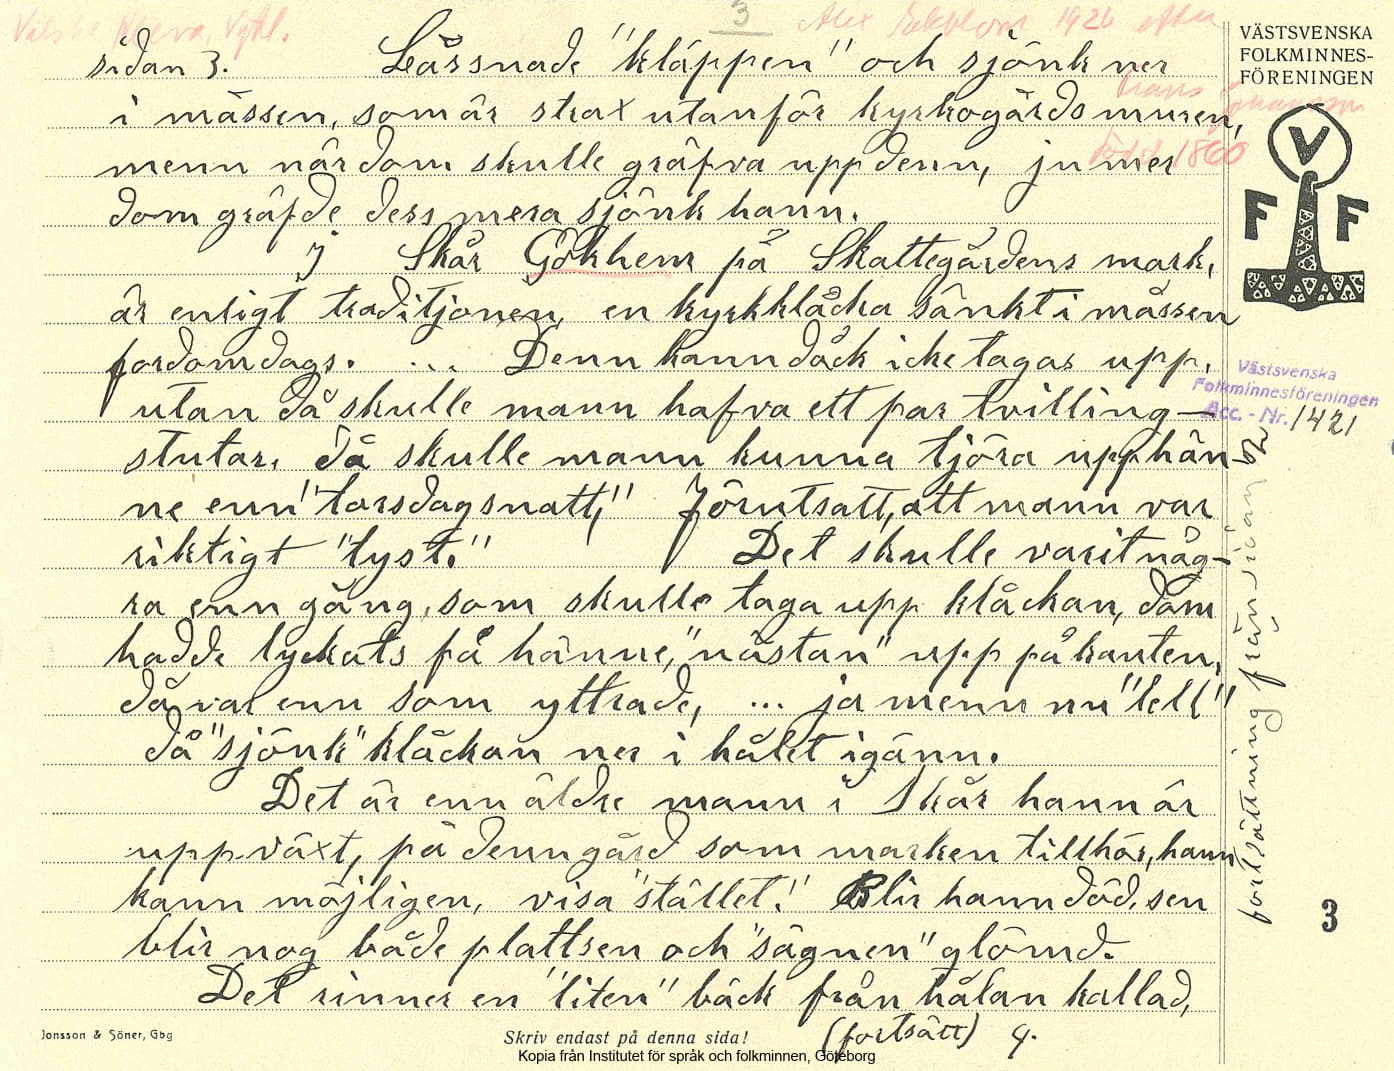 3
Vilske Kleva, Vgtl. Alex Eckblom 1926 efter
Frans Johansson
född 1860
VÄSTSVENSKA
FOLKMINNES-
FÖRENINGEN
V
F F
sidan 3. Låssnade "kläppen" och sjönk ner
i måssen, som är strax utanför kyrkogårdsmuren,
menn när dom skulle gräfva upp denn, ju mer
dom gräfde dess mera sjönk hann.
I Skår Gökhem på Skattegårdens mark,
är enligt traditjonen, en kyrkklåcka sänkt i måssen
fordomdags. ... Denn kann dåck icke tagas upp.
utan då skulle mann hafva ett par tvilling-
stutar, då skulle mann kunna tjöra upp hän-
ne enn "torsdagsnatt," Förutsatt, att mann var
riktigt "tyst." Det skulle varit någ-
ra enn gång, som skulle taga upp klåckan, dom
hadde lyckats få hänne, "nästan" upp på kanten,
då var enn som yttrade, ... ja menn nu "lell"
då "sjönk" klåckan ner i hålet igänn.
Det är enn äldre mann i Skår hann är
uppväxt, på denn gård som marken tillhör, hann
kann möjligen, visa "stället." Blir hann död, sen
blir nog både plattsen och "sägnen" glömd.
Det rinner en "liten" bäck från hålan kallad,
(fortsätt) 4.
Västsvenska
Folkminnesföreningen
Acc. - Nr. 1421
fortsättning från sidan 2
3
Jonsson & Söner, Gbg
Skriv endast på denna sida!
Kopia från Institutet för språk och folkminnen, Göteborg